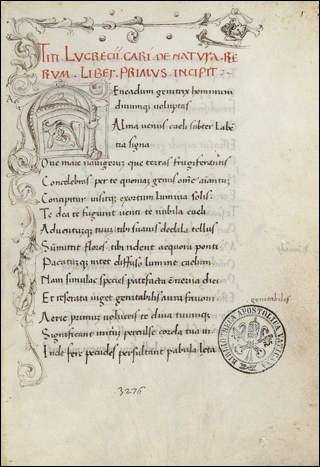 TITI. LUCRECII. CARI. DE NATURA. RE
RUM. LIBER. PRIMUS INCIPIT:~
Eneadum genitrix hominum
divumque voluptas
Alma venus caeli subter Labe
tia signa
Que mare navigerum que terras frugiferentis
Concelebras per te quoniam genus omne animantum
Concipitur visitque exortum lumina solis:
Te dea te fugiunt venti te nubila caeli
Adventumque tuum tibi suavis dedala tellus
Summittit flores tibi rident aequora ponti
Pacatumque nitet diffuso lumine caelum
Nam simul ac species patefacta est verna diei
Et reserata viget genitabilis aura favoni
genitabilis
Aerie primum volucris te diva tuumque
Significant initum perculse corda tua vi
Inde fere pecudes persultant pabula leta
BIBLIOTECA APOSTOLICA VATICANA
3276